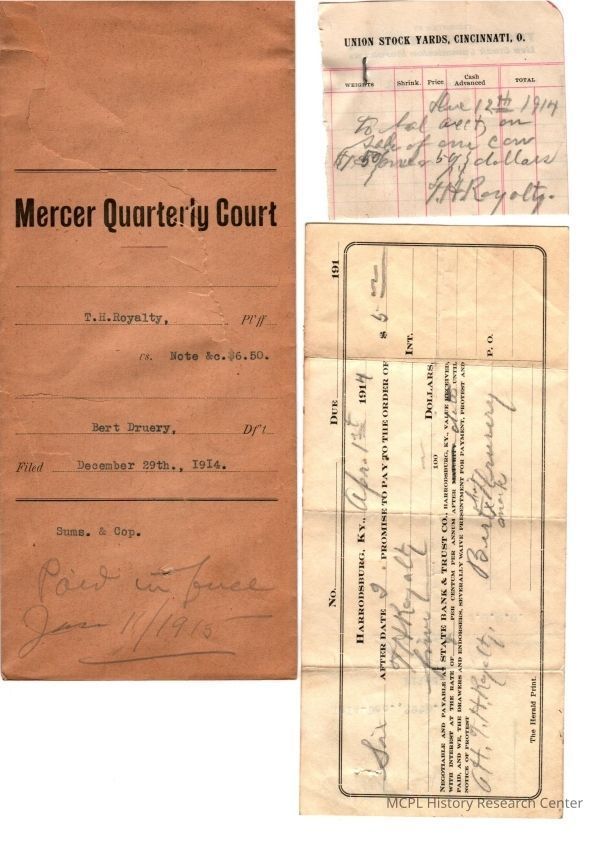 Mercer Quarterly Court
T.H.Royalty, Pl'ff
vs. Note &c. $6.50.
Bert Druery, Df't.
Filed December 29th., 1914.
Sums. & Cop.
Paid in
Jan 11/1915
UNION STOCK YARDS, CINCINNATI, O.
WEIGHTS Shrink. Price Cash Advanced TOTAL
12th 1914
To bal acct, on
sale of one cow
dollars
T. H Royalty.
No. DUE 191
HARRODSBURG, KY., Apr. 1st 1914 $ 5
Six AFTER DATE I PROMISE TO PAY TO THE ORDER OF
T H Royalty INT.
five 100 DOLLARS,
NEGOTIABLE AND PAYABLE AT STATE BANK & TRUST CO., HARRODSBURG, KY., VALUE RECEIVED,
WITH INTEREST AT THE RATE OF PER CENTUM PER ANNUM AFTER MATURITY date UNTIL
PAID, AND WE, THE DRAWERS AND ENDORSERS, SEVERALLY WAIVE PRESENTMENT FOR PAYMENT, PROTEST AND
NOTICE OF PROTEST
T. H. Royalty. Bert X Druery P. O.
his
mark
The Herald Print.
MCPL History Research Center